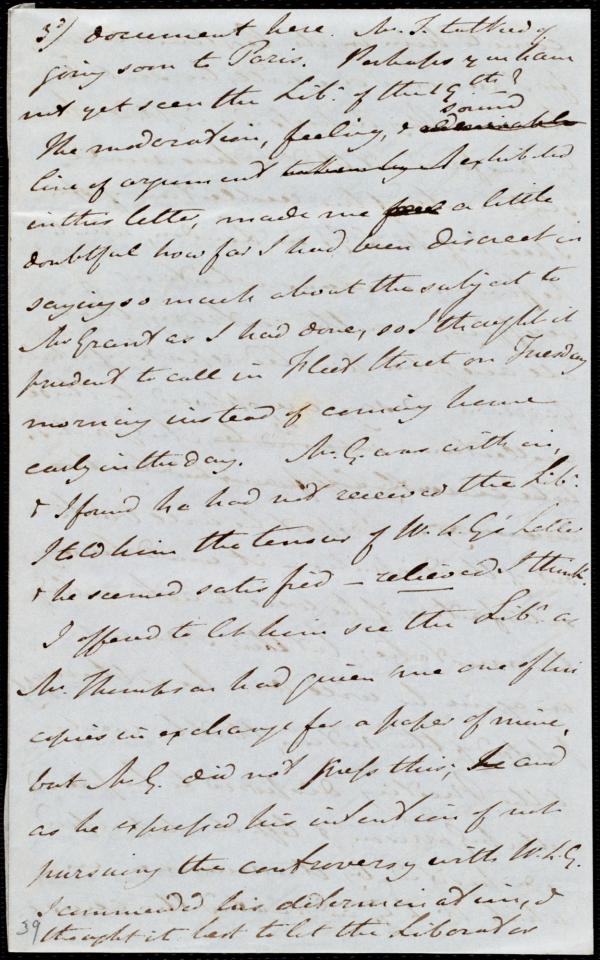 3d) document here. Mr. T. talked of
going soon to Paris. Perhaps you have
not yet seen the Libr. of the 19th?
The moderation, feeling, & sound
line of argument exhibited
in this letter, made me a little
doubtful how far I had been discreet in
saying so much about the subject to
Mr Grant as I had done, so I thought it
prudent to call in Fleet Street on Tuesday
morning instead of coming home
early in the day. Mr. G. was within,
& I found he had not received the Libr.
I told him the tenour of W.L.G's Letter
& he seemed satisfied – relieved I think.
I offered to let him see the Libr. as
Mr. Thompson had given me one of his
copies in exchange for a paper of mine,
but Mr. G. did not press this; and
as he expressed his intention of not
pursuing the controversy with W.L.G.
I commended his determination, &
thought it best to let the Liberator
39